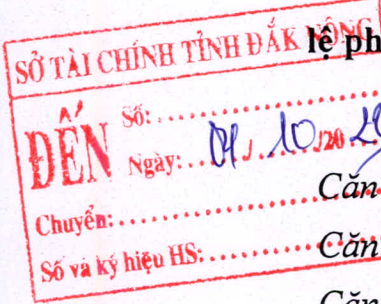 SỞ TÀI CHÍNH TỈNH ĐẮK NÔNG
lệ ph
ĐẾN
Số:
Ngày: 04/10/20
Căn
Chuyển:
Căn
Số và ký hiệu HS:
Căn